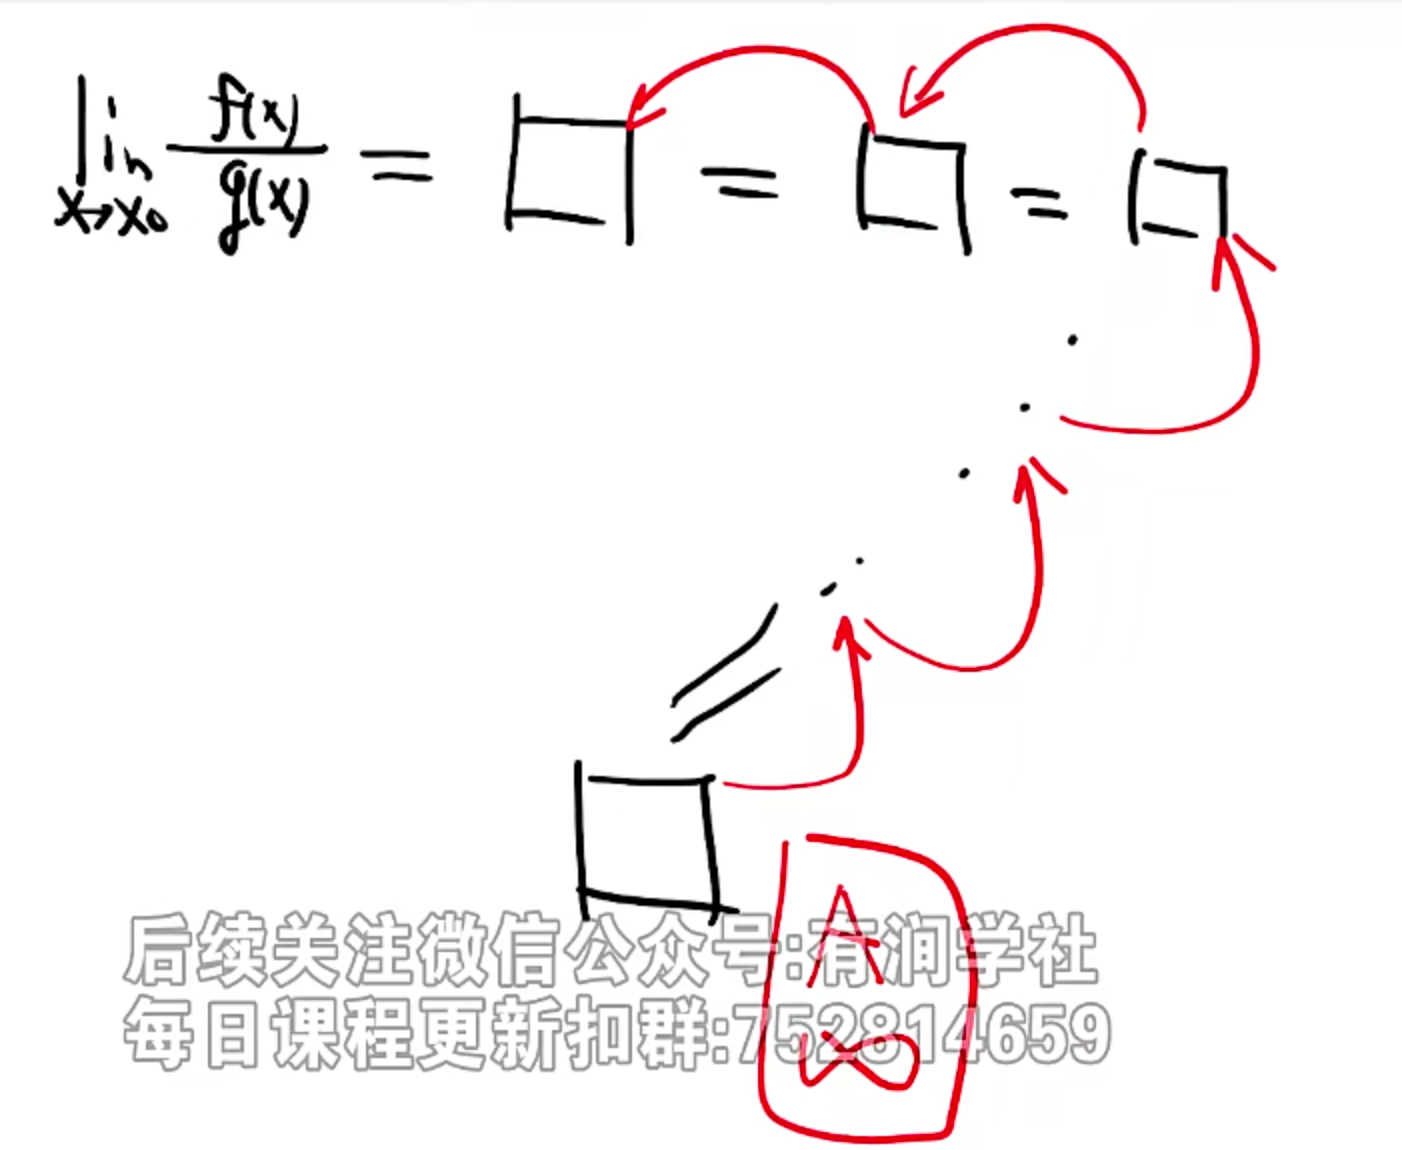 lim x→x₀ f(x)/g(x) = □ = □ = □
⋰
=
□
A
∞
后续关注微信公众号:有润学社
每日课程更新扣群:752814659